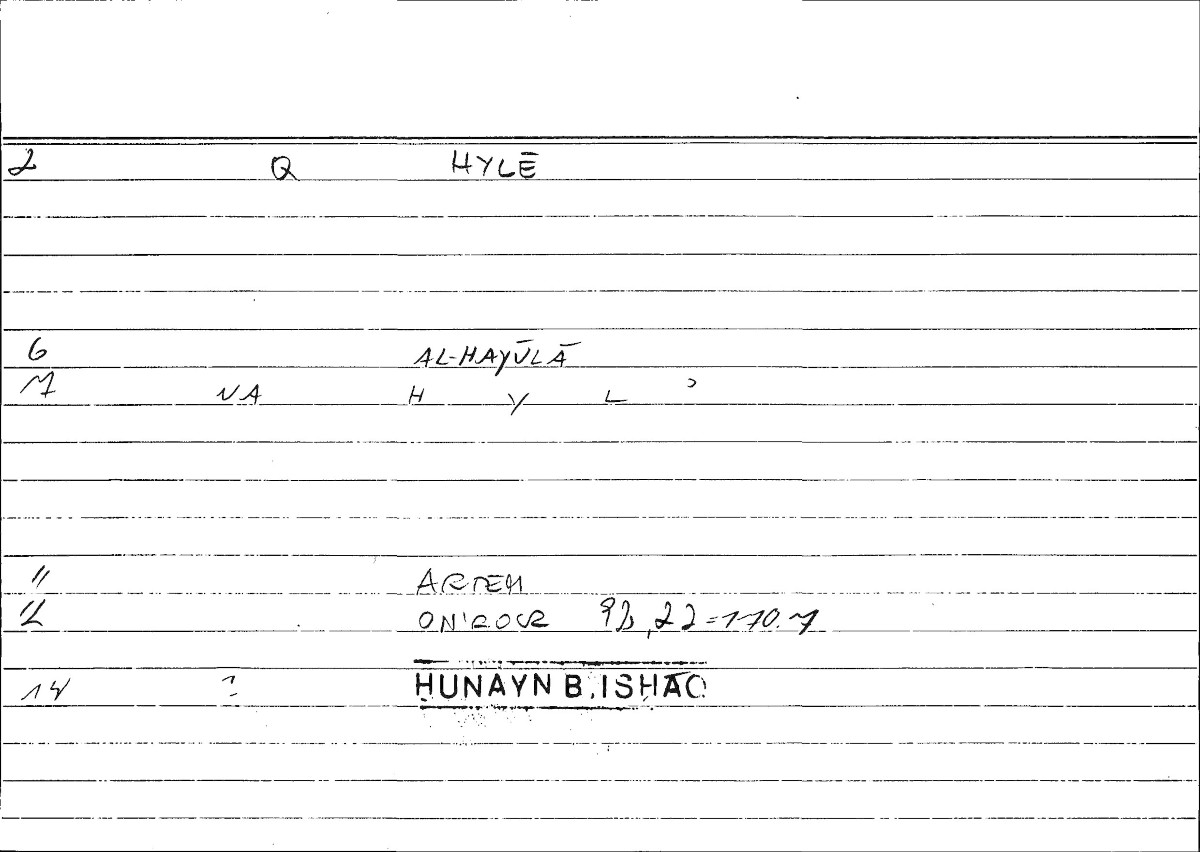 2 Q HYLĒ
6 AL-HAYŪLĀ
7 NA H Y L ʾ
11 ARTEM
12 ONIROCR 92,22=170.7
14 ? HUNAYN B. ISHĀQ